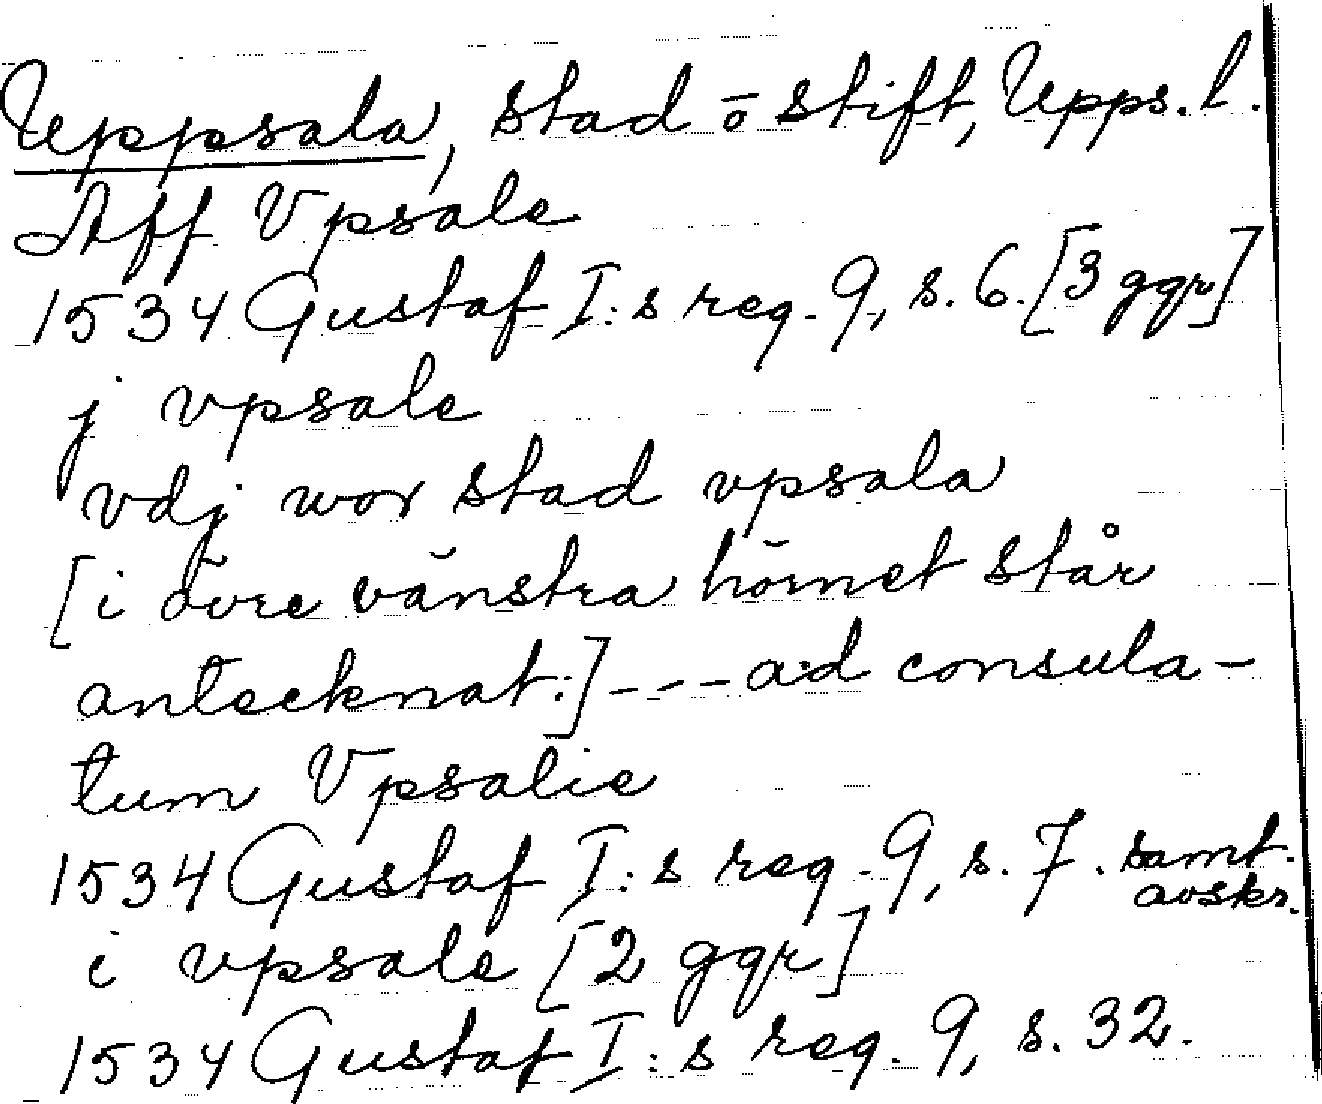 Uppsala, stad o stift, Upps. l.
Aff Vpsale
1534 Gustaf I:s reg. 9, s. 6. [3 ggr]
j vpsale
vdj wor stad vpsala
[i övre vänstra hörnet står
antecknat:] - - - ad consula-
tum Vpsalie
1534 Gustaf I:s reg. 9, s. 7. samt. avskr.
i vpsale [2 ggr]
1534 Gustaf I:s reg. 9, s. 32.